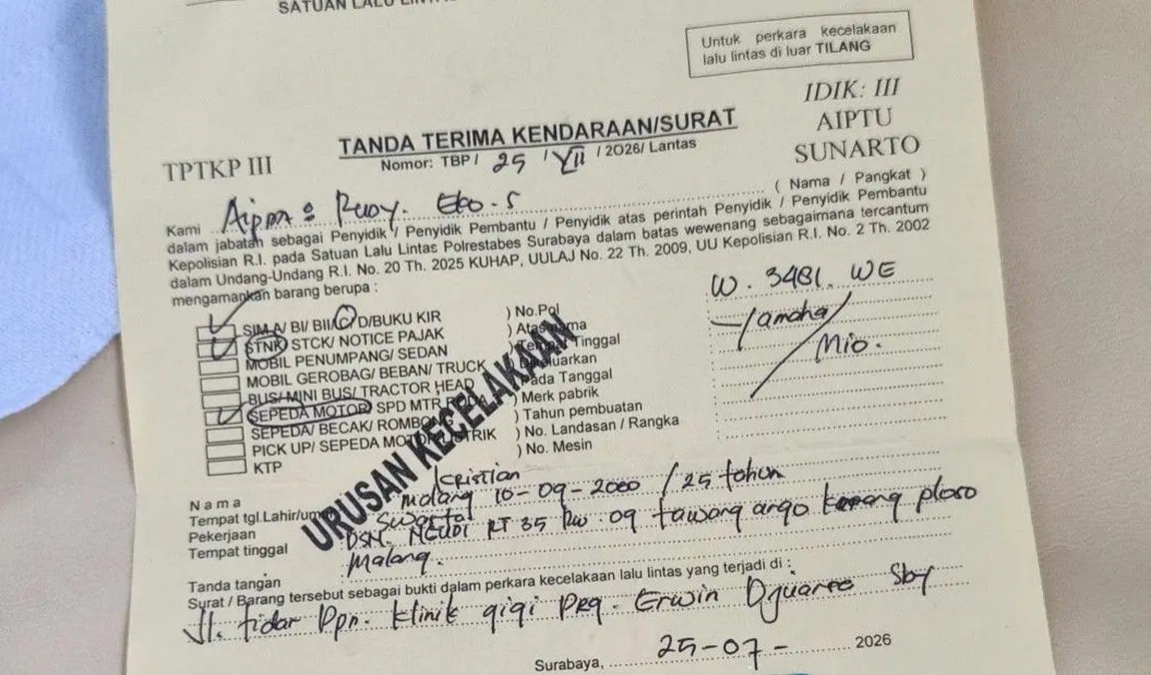 SATUAN LALU LINTAS
Untuk perkara kecelakaan
lalu lintas di luar TILANG
IDIK: III
AIPTU
SUNARTO
TPTKP III
TANDA TERIMA KENDARAAN/SURAT
Nomor: TBP/ 25 / VII / 2026/ Lantas
Kami Aippa : Rudy. Eko. S ( Nama / Pangkat )
dalam jabatan sebagai Penyidik / Penyidik Pembantu / Penyidik atas perintah Penyidik / Penyidik Pembantu
Kepolisian R.I. pada Satuan Lalu Lintas Polrestabes Surabaya dalam batas wewenang sebagaimana tercantum
dalam Undang-Undang R.I. No. 20 Th. 2025 KUHAP, UULAJ No. 22 Th. 2009, UU Kepolisian R.I. No. 2 Th. 2002
mengamankan barang berupa :
SIM A/ BI/ BII/ C D/BUKU KIR ) No.Pol W. 3481. WE
STNK STCK/ NOTICE PAJAK ) Atas nama Yamaha/
MOBIL PENUMPANG/ SEDAN ) Tempat Tinggal Mio.
MOBIL GEROBAG/ BEBAN/ TRUCK ) Dikeluarkan
BUS/ MINI BUS/ TRACTOR HEAD ) Pada Tanggal
SEPEDA MOTOR/ SPD MTR RODA ) Merk pabrik
SEPEDA/ BECAK/ ROMBONG ) Tahun pembuatan
PICK UP/ SEPEDA MOTOR LISTRIK ) No. Landasan / Rangka
KTP ) No. Mesin
URUSAN KECELAKAAN
Nama Kristian
Tempat tgl.Lahir/umur Malang 10-09-2000 / 25 tahun
Pekerjaan Swasta
Tempat tinggal DSN. RT 35 RW. 09 tawang argo karang ploso
Malang.
Tanda tangan
Surat / Barang tersebut sebagai bukti dalam perkara kecelakaan lalu lintas yang terjadi di :
Jl. tidar Dpn. Klinik gigi Drg. Erwin Djuarso Sby
Surabaya, 25-07- 2026